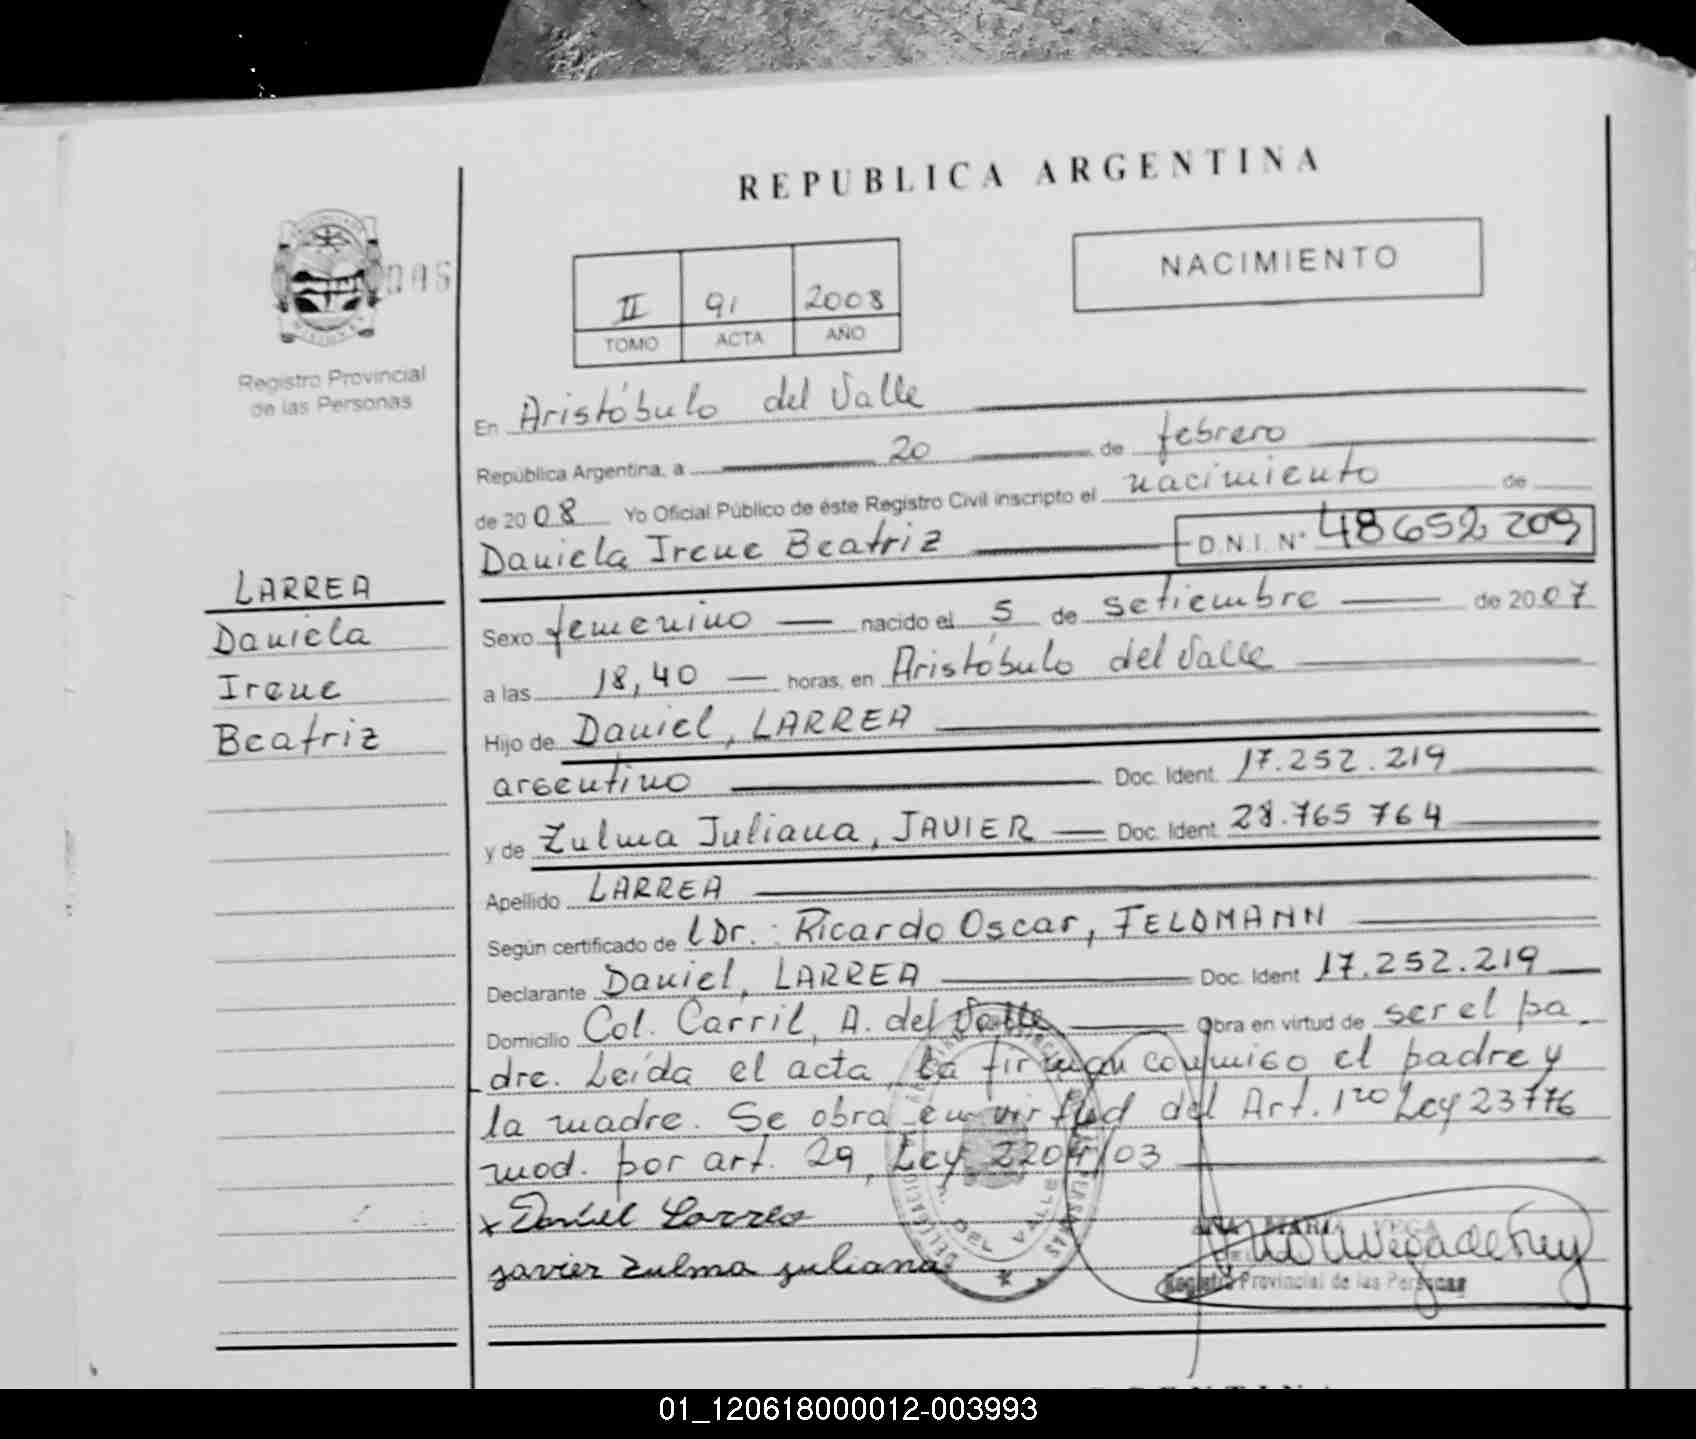 REPUBLICA ARGENTINA
NACIMIENTO
II 91 2008
TOMO ACTA AÑO
Registro Provincial
de las Personas
En Aristóbulo del Valle
República Argentina, a 20 de febrero
de 2008 Yo Oficial Público de éste Registro Civil inscripto el nacimiento de
Daniela Irene Beatriz D.N.I. N° 48652209
LARREA
Daniela
Irene
Beatriz
Sexo femenino nacido el 5 de setiembre de 2007
a las 18,40 horas, en Aristóbulo del Valle
Hijo de Daniel, LARREA
argentino Doc. Ident. 17.252.219
y de Zulma Juliana, JAVIER Doc. Ident. 28.765 764
Apellido LARREA
Según certificado de Dr.: Ricardo Oscar, FELDMANN
Declarante Daniel, LARREA Doc. Ident 17.252.219
Domicilio Col. Carril, A. del Valle Obra en virtud de ser el pa
dre. Leída el acta, la firman conmigo el padre y
la madre. Se obra en virtud del Art. 1ro Ley 23776
mod. por art. 29, Ley 2204/03
x Daniel Larrea
javier zulma juliana
DEL VALLE
ANA MARIA VEGA
Registro Provincial de las Personas
01_120618000012-003993